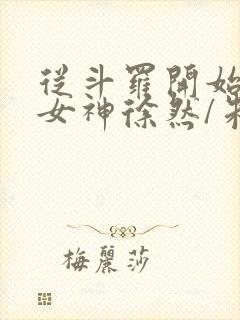 從斗羅開始
女神徐然/
梅麗莎